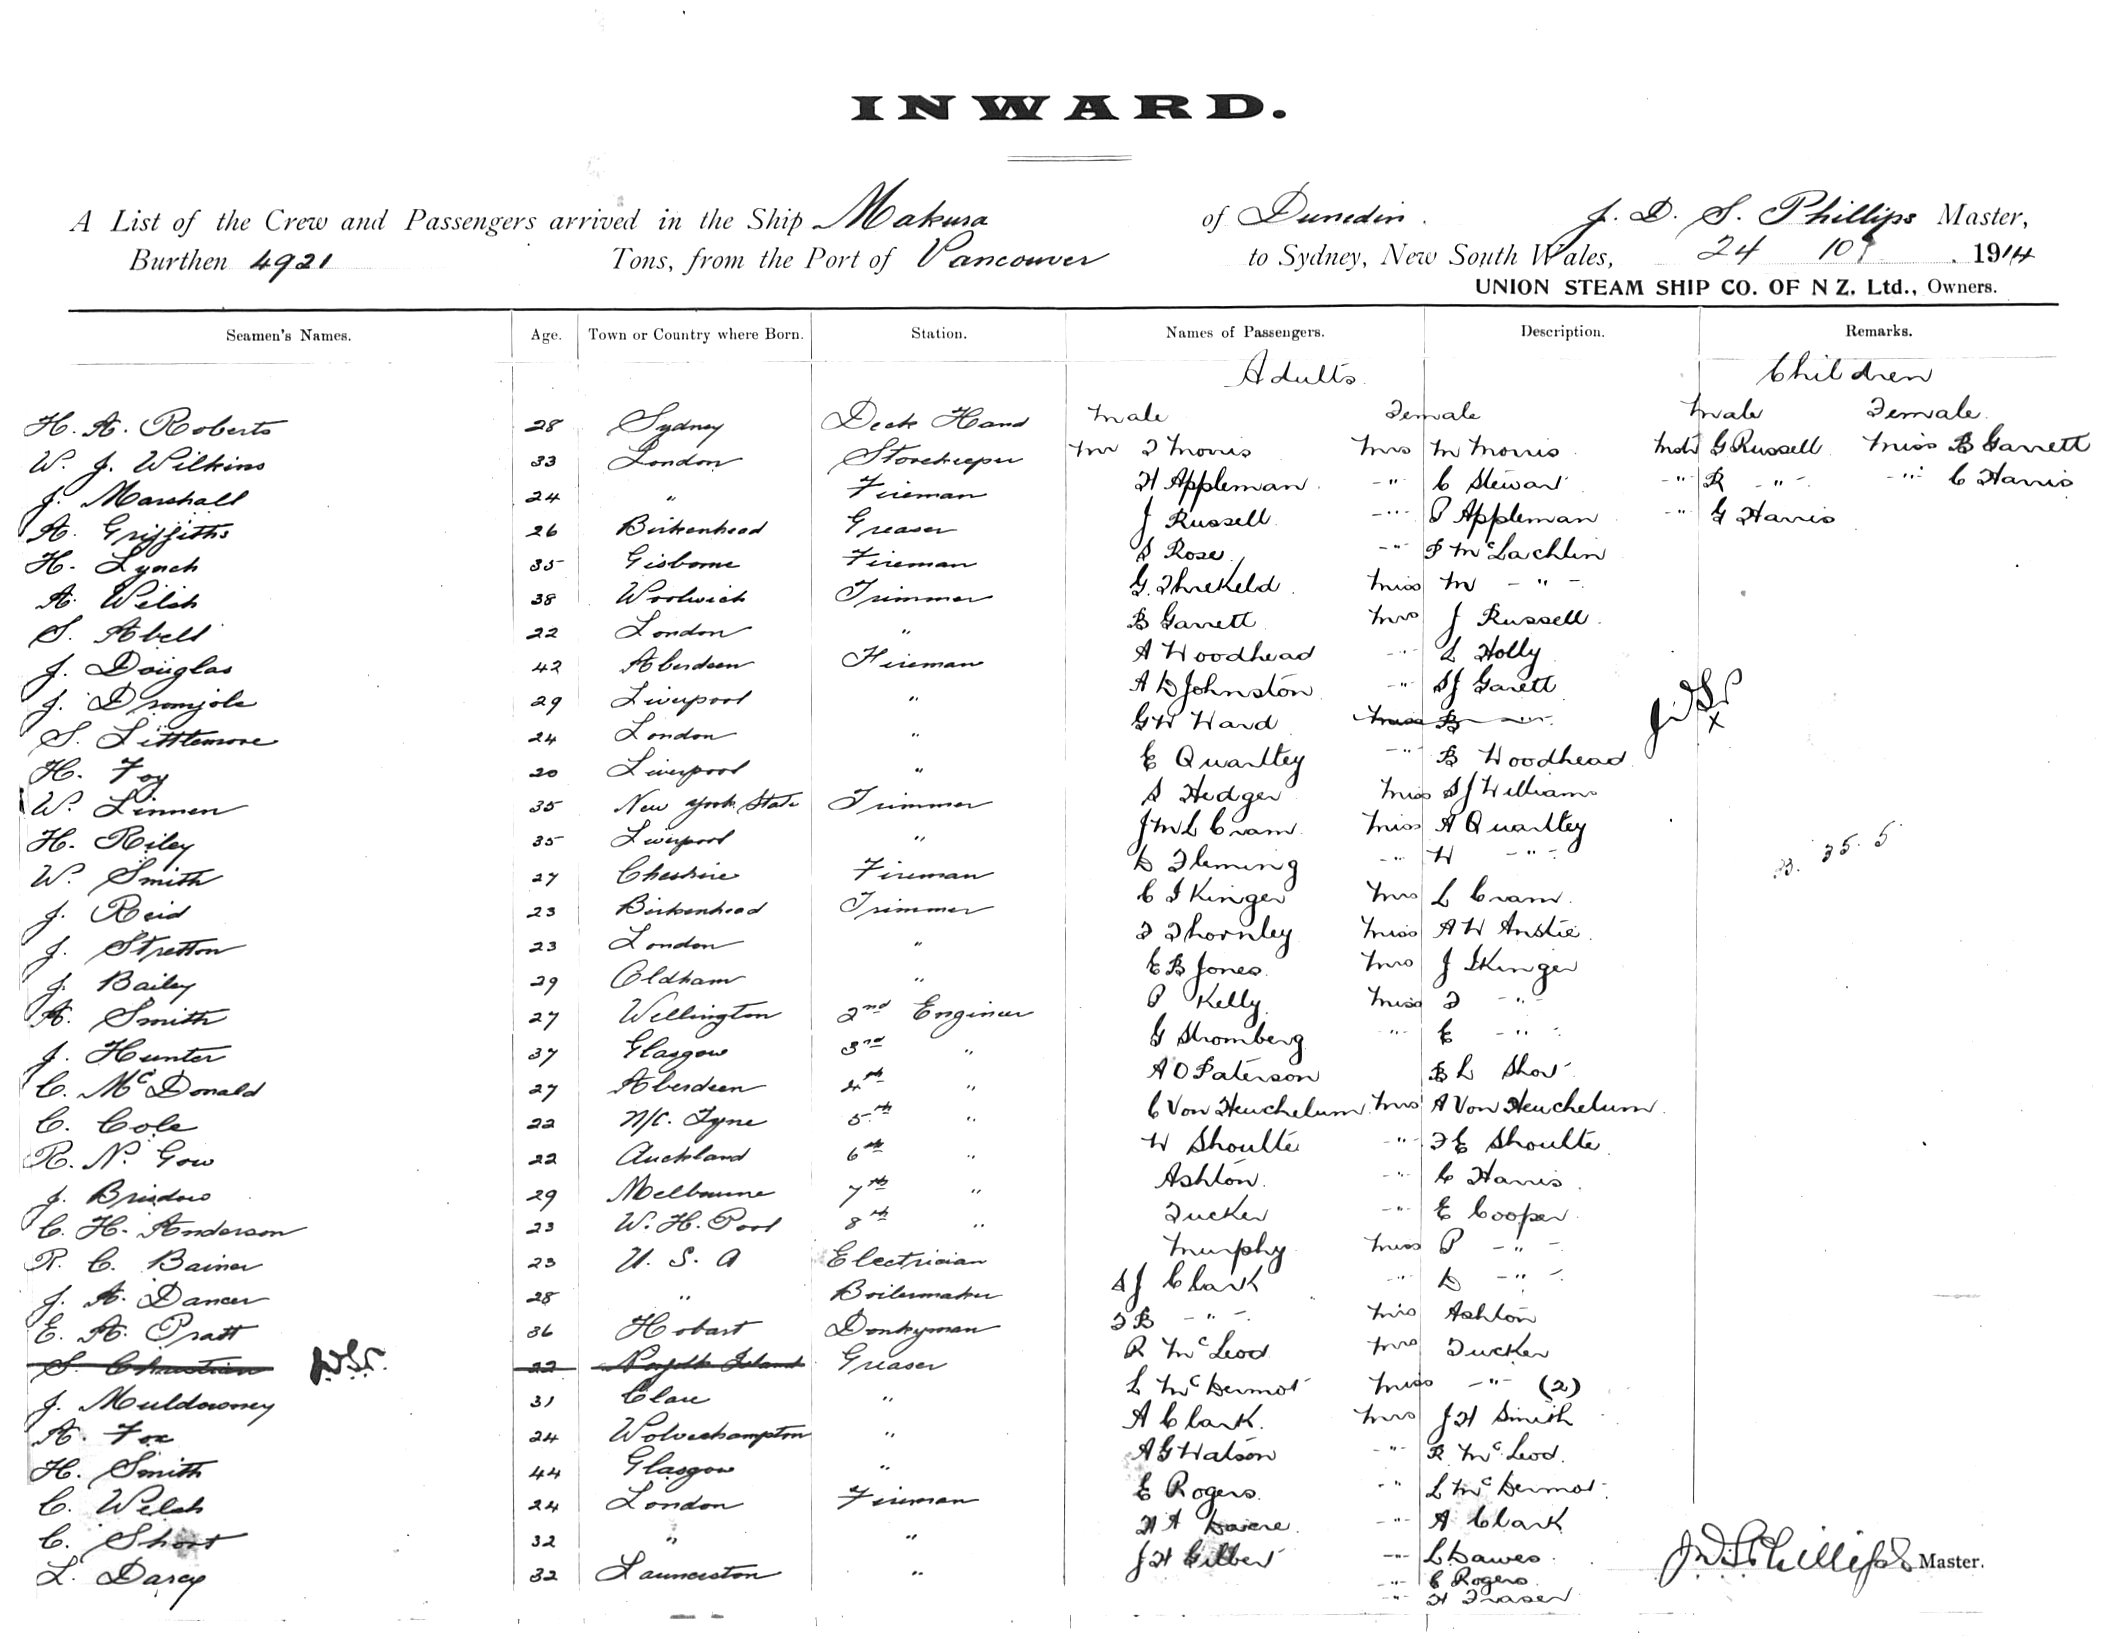 INWARD.
A List of the Crew and Passengers arrived in the Ship Makura of Dunedin. J. D. S. Phillips Master,
Burthen 4921 Tons, from the Port of Vancouver to Sydney, New South Wales, 24 10 1914
UNION STEAM SHIP CO. OF N Z. Ltd., Owners.
Seamen's Names. Age. Town or Country where Born. Station. Names of Passengers. Description. Remarks.
Adults Children
Male Female Male Female
H. A. Roberts 28 Sydney Deck Hand
W. J. Wilkins 33 London Storekeeper Mr F Morris Mrs M Morris Mstr G Russell Miss B Garrett
J. Marshall 24 " Fireman H Appleman " C Stewart " R " " C Harris
A. Griffiths 26 Birkenhead Greaser J Russell " P Appleman " G Harris
H. Lynch 35 Gisborne Fireman S Rose " P McLachlin
A. Welsh 38 Woolwich Trimmer G. Threkeld Miss M "
S. Abell 22 London " B Garrett Mrs J Russell
J. Douglas 42 Aberdeen Fireman A Woodhead " L Holly
J. Dromjole 29 Liverpool " A D Johnston " S J Garett
S. Littlemore 24 London " G W Ward Miss B " J.D.S.P. x
H. Foy 20 Liverpool " E Quartley " B Woodhead
W. Linnen 35 New York State Trimmer S Hedger Miss S J Williams
H. Riley 35 Liverpool " J M L Cram Miss A Quartley
W. Smith 27 Cheshire Fireman D Fleming " W " 33. 35. 5
J. Reid 23 Birkenhead Trimmer C I Kinger Mrs L Cram
J. Stretton 23 London " F Thornley Miss A W Anstie
J. Bailey 29 Oldham " E B Jones Mrs J IKinger
A. Smith 27 Wellington 2nd Engineer P Kelly Miss F "
J. Hunter 37 Glasgow 3rd " G Stromberg " E "
C. McDonald 27 Aberdeen 4th " A O Paterson B L Shot
C. Cole 22 N/C. Tyne 5th " C Von Heuchelum Mrs A Von Heuchelum
R. N. Gow 22 Auckland 6th " W Shoulte " F E Shoulte
J. Brisdow 29 Melbourne 7th " Ashton " C Harris
C. H. Anderson 23 W. H. Pool 8th " Tucker " E Cooper
R. C. Bainer 23 U. S. A Electrician Murphy Miss P "
J. A. Dancer 28 " Boilermaker S J Clark " D "
E. A. Pratt 36 Hobart Donkyman F B " Mrs Ashton
S. Christian J.D.S.P. 22 Norfolk Island Greaser R McLeod Mrs Tucker
J. Muldowney 31 Clare " L McDermot Miss " (2)
A. Fox 24 Wolverhampton " A Clark Mrs J H Smith
H. Smith 44 Glasgow " A G Watson " R McLeod
C. Welsh 24 London Fireman E Rogers " L McDermot
C. Short 32 " " " A Clark
L. Darcy 32 Launceston " J H Gilbert " L Dawes J.D.S. Phillips Master.
" C Rogers
" H Fraser